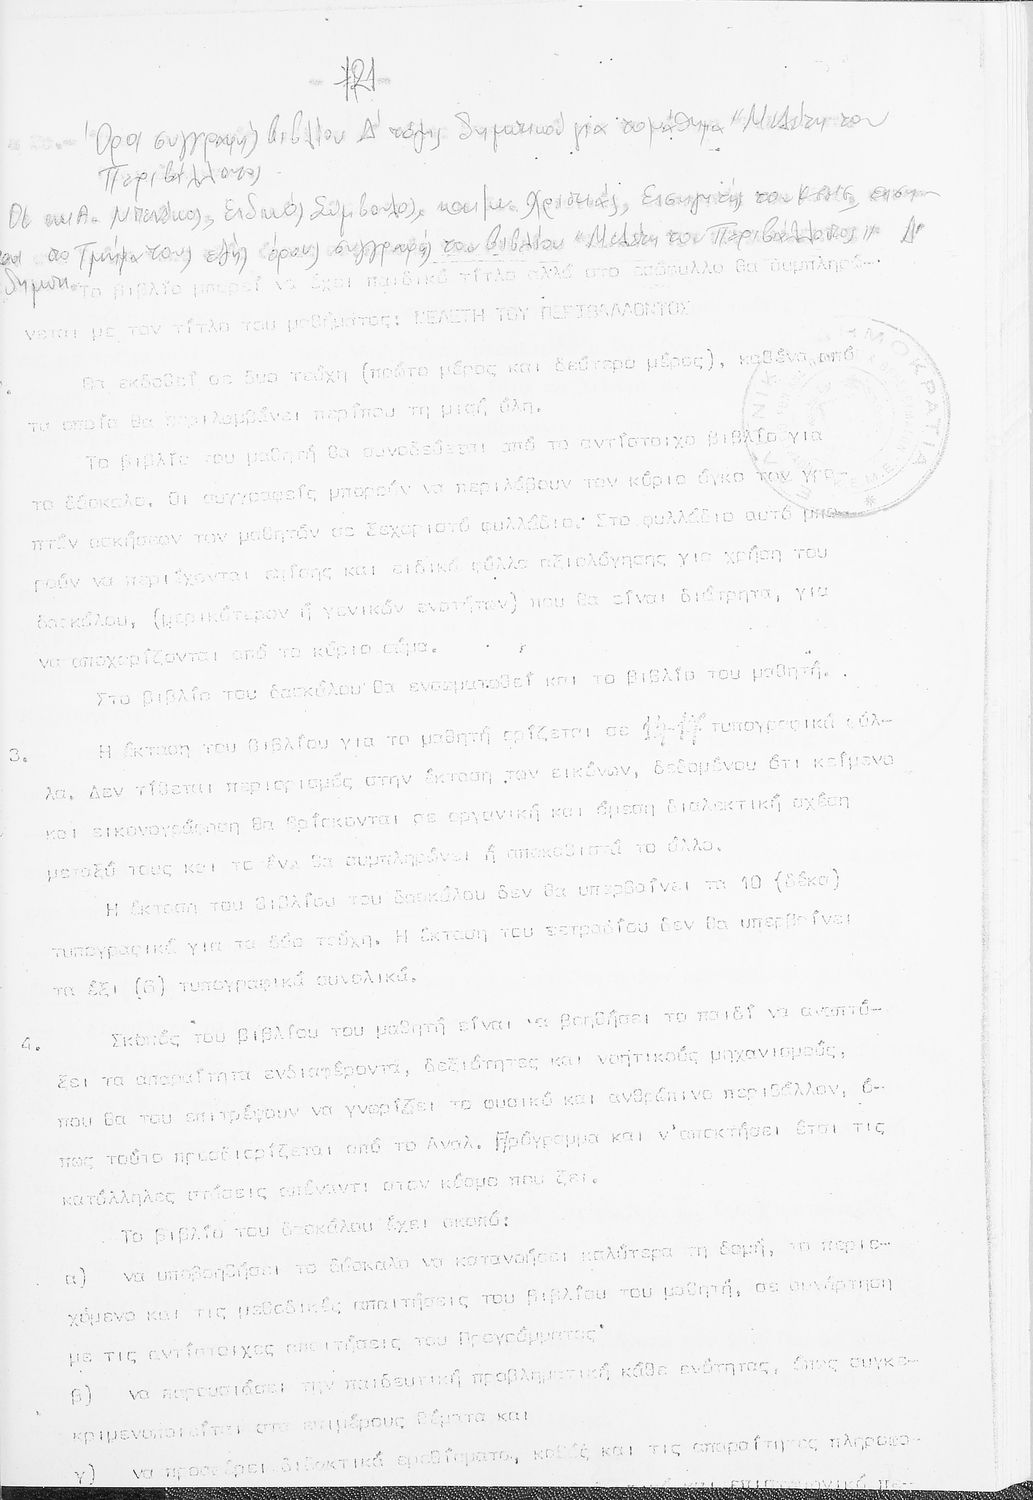 - 121 -
Όροι συγγραφής βιβλίου Δ' τάξης δημοτικού για το μάθημα "Μελέτη του
Περιβάλλοντος
Οι κκ Α. Μπενέκος, Ειδικός Σύμβουλος, και κ. Χρηστιάς, Εισηγητής του ΚΕΜΕ,
στο Τμήμα τους εξής όρους συγγραφής του βιβλίου "Μελέτη του Περιβάλλοντος" Δ'
δημοτ.
Το βιβλίο μπορεί να έχει παιδικό τίτλο αλλά στο εσώφυλλο θα συμπληρώ-
νεται με τον τίτλο του μαθήματος: ΜΕΛΕΤΗ ΤΟΥ ΠΕΡΙΒΑΛΛΟΝΤΟΣ
Θα εκδοθεί σε δυο τεύχη (πρώτο μέρος και δεύτερο μέρος), καθένα από
τα οποία θα περιλαμβάνει περίπου τη μισή ύλη.
Το βιβλίο του μαθητή θα συνοδεύεται από το αντίστοιχο βιβλίο για
το δάσκαλο. Οι συγγραφείς μπορούν να περιλάβουν τον κύριο όγκο των γρα-
πτών ασκήσεων των μαθητών σε ξεχωριστό φυλλάδιο. Στο φυλλάδιο αυτό μπο-
ρούν να περιέχονται επίσης και ειδικά φύλλα αξιολόγησης για χρήση του
δασκάλου, (μερικώτερων ή γενικών ενοτήτων) που θα είναι διάτρητα, για
να αποχωρίζονται από το κύριο σώμα.
Στο βιβλίο του δασκάλου θα ενσωματωθεί και το βιβλίο του μαθητή.
3. Η έκταση του βιβλίου για το μαθητή ορίζεται σε τυπογραφικά φύλ-
λα. Δεν τίθεται περιορισμός στην έκταση των εικόνων, δεδομένου ότι κείμενο
και εικονογράφηση θα βρίσκονται σε οργανική και άμεση διαλεκτική σχέση
μεταξύ τους και το ένα θα συμπληρώνει ή αποκαθιστά το άλλο.
Η έκταση του βιβλίου του δασκάλου δεν θα υπερβαίνει τα 10 (δέκα)
τυπογραφικά για τα δύο τεύχη. Η έκταση του τετραδίου δεν θα υπερβαίνει
τα έξι (6) τυπογραφικά συνολικά.
4. Σκοπός του βιβλίου του μαθητή είναι να βοηθήσει το παιδί να αναπτύ-
ξει τα απαραίτητα ενδιαφέροντα, δεξιότητες και νοητικούς μηχανισμούς,
που θα του επιτρέψουν να γνωρίζει το φυσικό και ανθρώπινο περιβάλλον, ό-
πως τούτο προσδιορίζεται από το Αναλ. Πρόγραμμα και ν'αποκτήσει έτσι τις
κατάλληλες στάσεις απέναντι στον κόσμο που ζει.
Το βιβλίο του δασκάλου έχει σκοπό:
α) να υποβοηθήσει το δάσκαλο να κατανοήσει καλύτερα τη δομή, το περιε-
χόμενο και τις μεθοδικές απαιτήσεις του βιβλίου του μαθητή, σε συνάρτηση
με τις αντίστοιχες απαιτήσεις του Προγράμματος·
β) να παρουσιάσει την παιδευτική προβληματική κάθε ενότητας, όπως συγκε-
κριμενοποιείται στα επιμέρους θέματα και
γ) να προσφέρει διδακτικά ερεθίσματα, καθώς και τις απαραίτητες πληροφο-